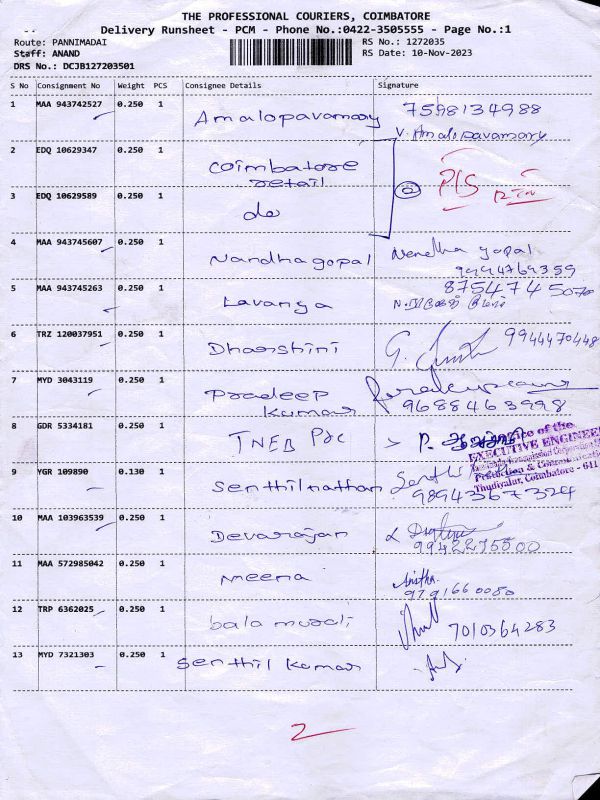 THE PROFESSIONAL COURIERS, COIMBATORE
Delivery Runsheet - PCM - Phone No.:0422-3505555 - Page No.:1
Route: PANNIMADAI RS No.: 1272035
Staff: ANAND RS Date: 10-Nov-2023
DRS No.: DCJB127203501
S No Consignment No Weight PCS Consignee Details Signature
1 MAA 943742527 0.250 1 Amalopavamary 7598134988
V. Amalopavamary
2 EDQ 10629347 0.250 1 Coimbatore
retail
3 EDQ 10629589 0.250 1 do
4 MAA 943745607 0.250 1 Nandhagopal Nandha gopal
9994769359
5 MAA 943745263 0.250 1 Lavanya 8754745070
6 TRZ 120037951 0.250 1 Dharshini 9944470448
7 MYD 3043119 0.250 1 Pradeep
Kumar 9688463998
8 GDR 5334181 0.250 1 TNEB P&C
Office of the
EXECUTIVE ENGINEER
Protection & Communication
Thudiyalur, Coimbatore - 611
9 YGR 109890 0.130 1 Senthilnathan Senthil
9894367324
10 MAA 103963539 0.250 1 Devarajan
9942275500
11 MAA 572985042 0.250 1 Meena Anitha
9791660080
12 TRP 6362025 0.250 1 bala murali 7010364283
13 MYD 7321303 0.250 1 Senthil Kumar
2